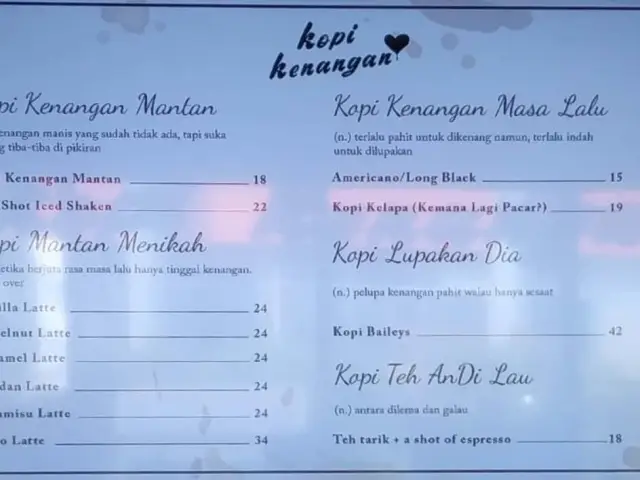 kopi
kenangan
pi Kenangan Mantan
enangan manis yang sudah tidak ada, tapi suka
g tiba-tiba di pikiran
Kenangan Mantan 18
Shot Iced Shaken 22
pi Mantan Menikah
etika berjuta rasa masa lalu hanya tinggal kenangan.
over
illa Latte 24
elnut Latte 24
amel Latte 24
dan Latte 24
amisu Latte 24
o Latte 34
Kopi Kenangan Masa Lalu
(n.) terlalu pahit untuk dikenang namun, terlalu indah
untuk dilupakan
Americano/Long Black 15
Kopi Kelapa (Kemana Lagi Pacar?) 19
Kopi Lupakan Dia
(n.) pelupa kenangan pahit walau hanya sesaat
Kopi Baileys 42
Kopi Teh AnDi Lau
(n.) antara dilema dan galau
Teh tarik + a shot of espresso 18